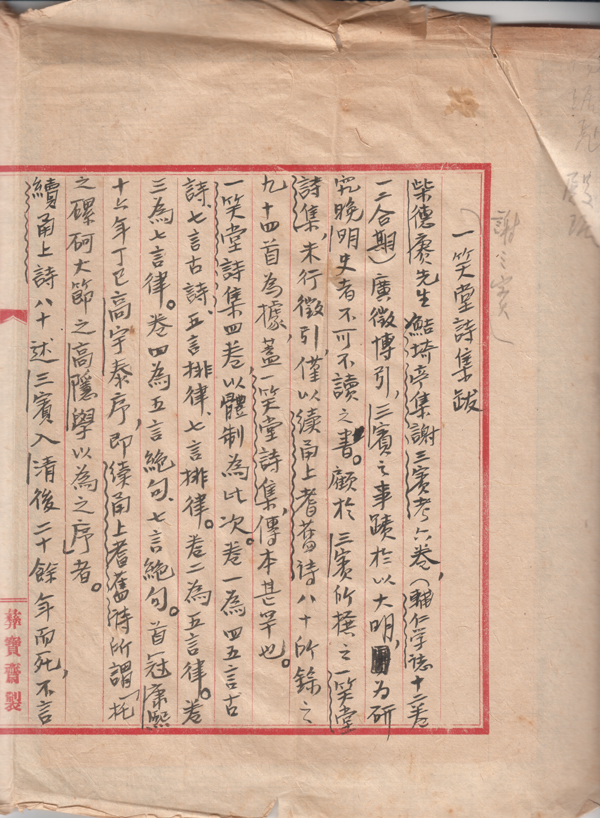 謝三賓
一笑堂詩集跋
柴德赓先生鮚埼亭集謝三賓考六卷，（輔仁学誌十二卷
一二合期）廣徵博引，三賓之事蹟於以大明，為研
究晚明史者不可不讀之書。顧於三賓所撰之一笑堂
詩集，未行徵引，僅以續甬上耆舊詩八十所錄之
九十四首為據，蓋一笑堂詩集，傳本甚罕也。
一笑堂詩集四卷以體制為比次。卷一為四五言古
詩、七言古詩、五言排律、七言排律。卷二為五言律。卷
三為七言律。卷四為五言絕句、七言絕句。首冠康熙
十六年丁巳高宇泰序，即續甬上耆舊詩所謂「托
之磥砢大節之高隱學以為之序」者。
續甬上詩八十述三賓入清後二十餘年而死，不言
彝寶齋製